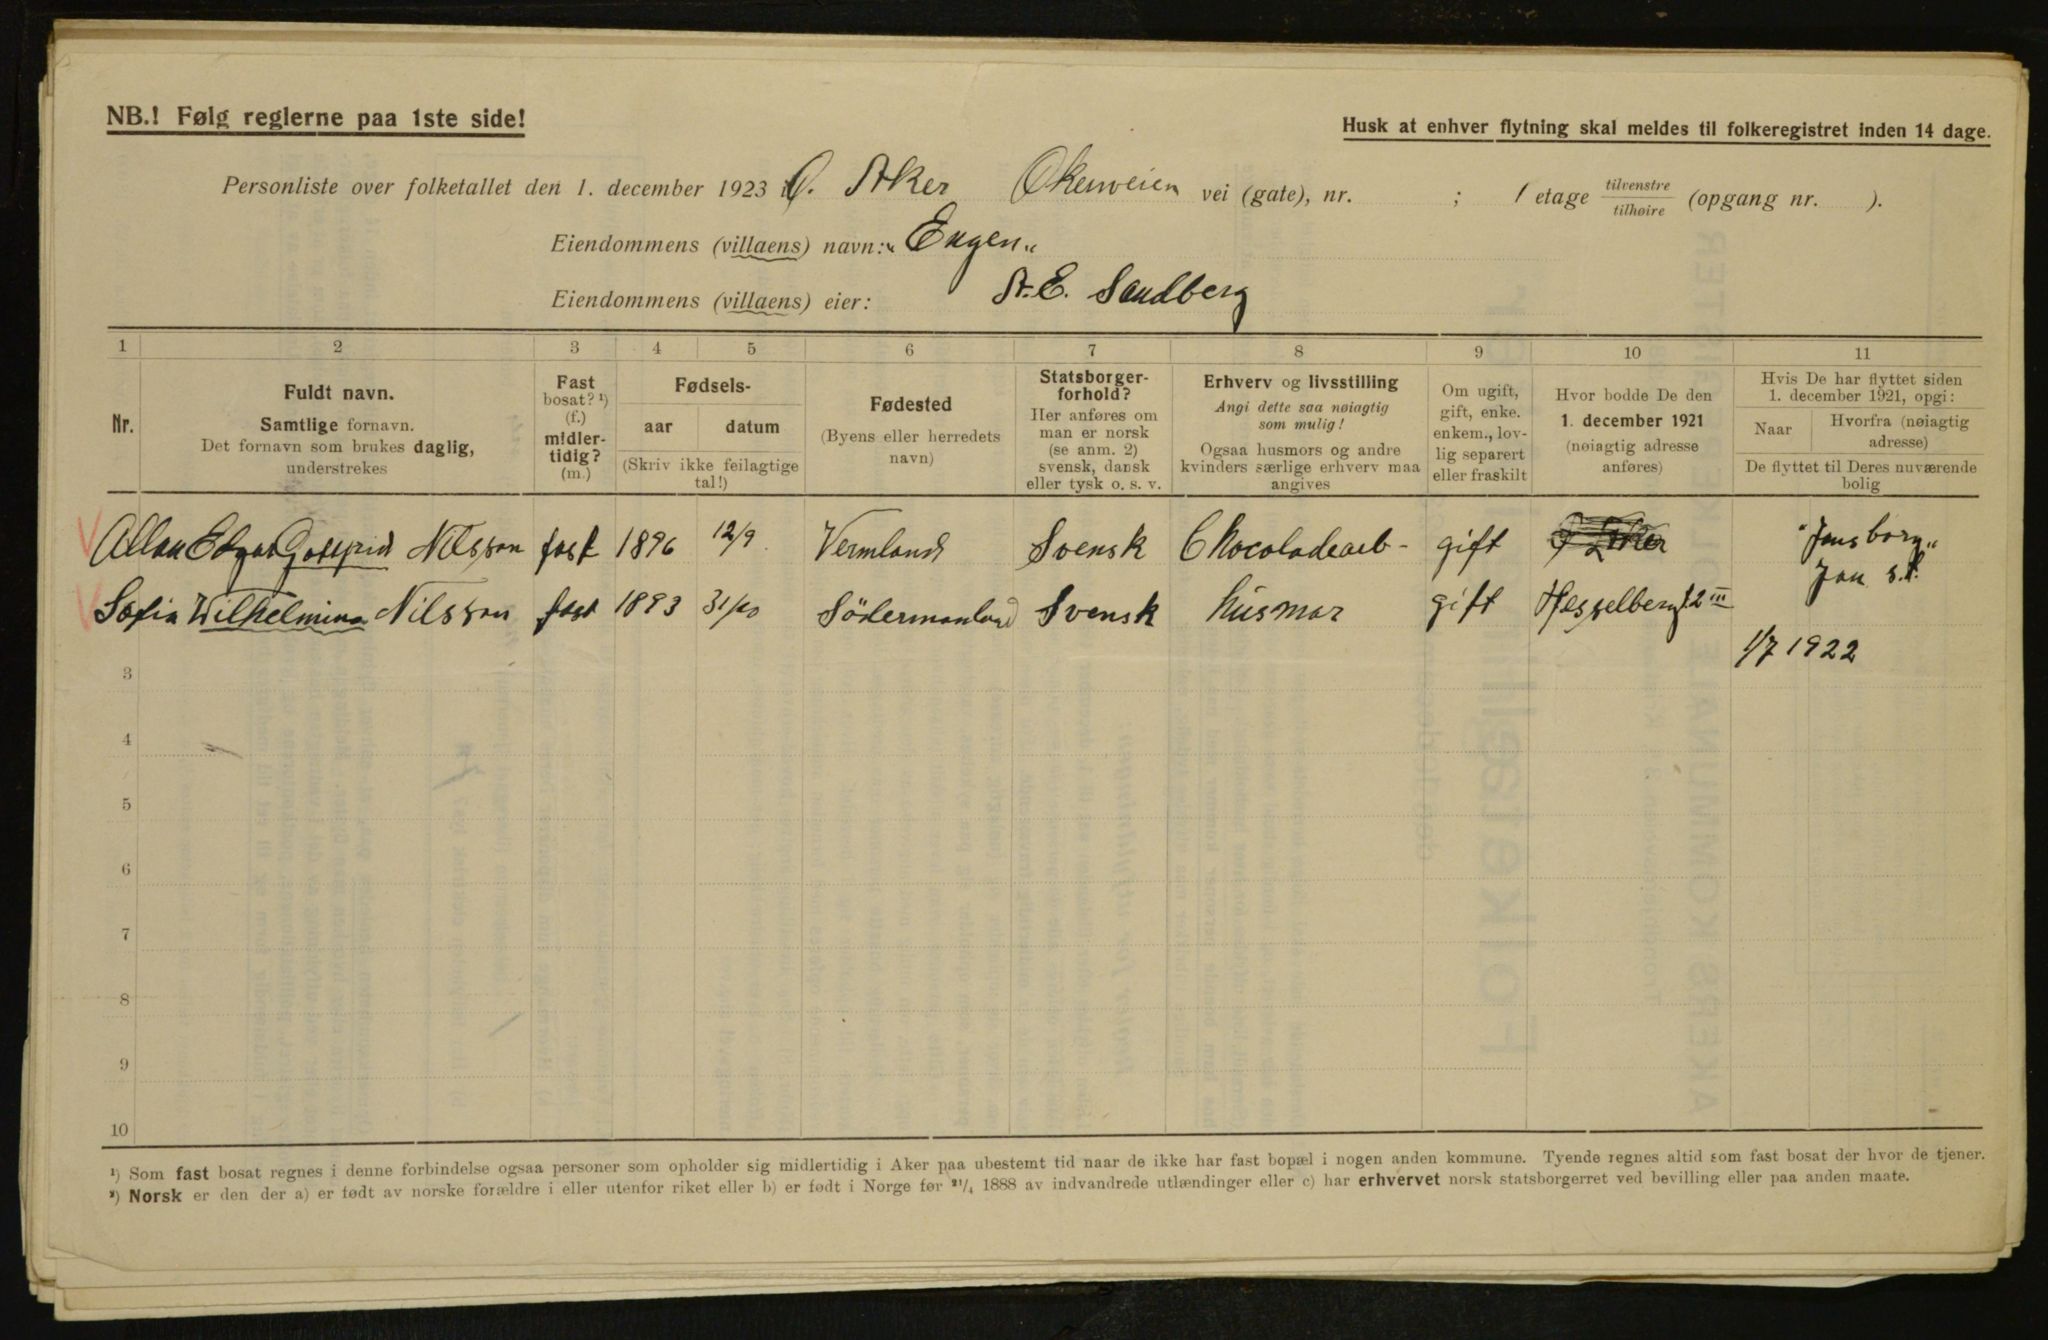 NB.! Følg reglerne paa 1ste side!
Husk at enhver flytning skal meldes til folkeregistret inden 14 dage.
Personliste over folketallet den 1. december 1923 i Ø. Aker Økernveien vei (gate), nr. ; 1 etage tilvenstre/tilhøire (opgang nr. ).
Eiendommens (villaens) navn: "Engen"
Eiendommens (villaens) eier: A. E. Sandberg
1 2 3 4 5 6 7 8 9 10 11
Nr.
Fuldt navn.
Samtlige fornavn.
Det fornavn som brukes daglig,
understrekes
Fast
bosat? ¹)
(f.)
midler-
tidig?
(m.)
Fødsels-
aar datum
(Skriv ikke feilagtige
tal!)
Fødested
(Byens eller herredets
navn)
Statsborger-
forhold?
Her anføres om
man er norsk
(se anm. 2)
svensk, dansk
eller tysk o. s. v.
Erhverv og livsstilling
Angi dette saa nøiagtig
som mulig!
Ogsaa husmors og andre
kvinders særlige erhverv maa
angives
Om ugift,
gift, enke.
enkem., lov-
lig separert
eller fraskilt
Hvor bodde De den
1. december 1921
(nøiagtig adresse
anføres)
Hvis De har flyttet siden
1. december 1921, opgi:
Naar
Hvorfra (nøiagtig
adresse)
De flyttet til Deres nuværende
bolig
Allan Edgar Gottfrid Nilsson fast 1896 12/9 Vermland Svensk Chocoladearb- gift "Jansborg"
Sofia Wilhelmina Nilsson fast 1893 31/10 Södermanland Svensk husmor gift Hesselberg 12 III
1/7 1922
3
4
5
6
7
8
9
10
¹) Som fast bosat regnes i denne forbindelse ogsaa personer som opholder sig midlertidig i Aker paa ubestemt tid naar de ikke har fast bopæl i nogen anden kommune. Tyende regnes altid som fast bosat der hvor de tjener.
²) Norsk er den der a) er født av norske forældre i eller utenfor riket eller b) er født i Norge før ²¹/₄ 1888 av indvandrede utlændinger eller c) har erhvervet norsk statsborgerret ved bevilling eller paa anden maate.